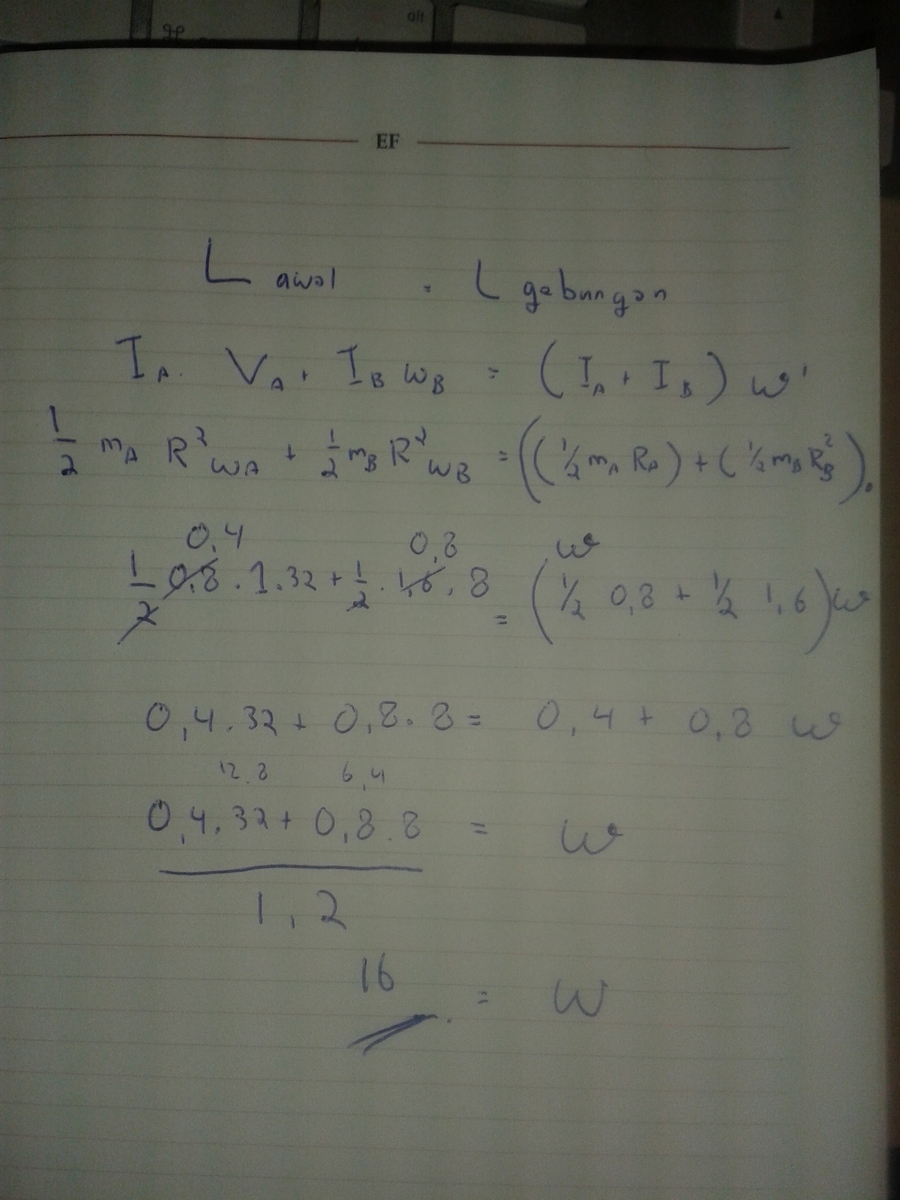 alt
EF
L awal = L gabungan
I_A . V_A + I_B ω_B = (I_A + I_B) ω'
1/2 m_A R² ω_A + 1/2 m_B R² ω_B = ((1/2 m_A R_A) + (1/2 m_B R_B²).
0,4 0,8 ω
1/2 0,8 . 1 . 32 + 1/2 . 1,6 . 8 = (1/2 0,8 + 1/2 1,6) ω
0,4 . 32 + 0,8 . 8 = 0,4 + 0,8 ω
12,8 6,4
0,4 . 32 + 0,8 . 8 = ω
1,2
16 = ω